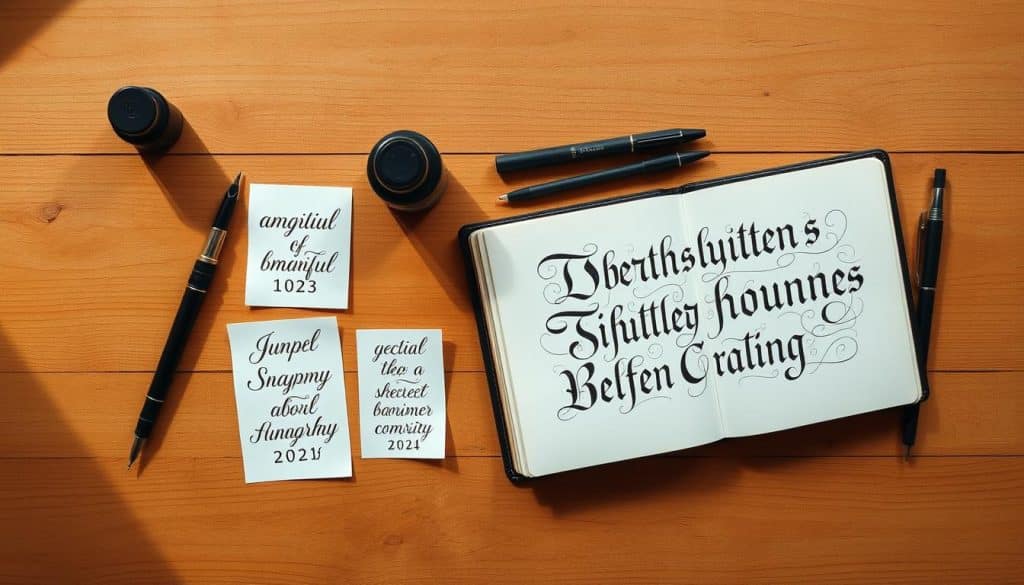 amgitiul
of
bmaniful
1023
Junpel
Snaypmy
aboul
flunagrhy
gectial
the a
shecient
bamimer
comirity
2024
Dberthslyittens
Tifuttley hounnes
Belfen Crating